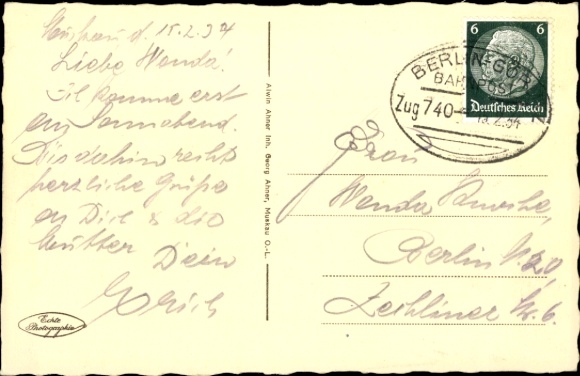 Muskau, d. 15.2.34
Liebe Wanda!
Ich komme erst
am Sonnabend.
Bis dahin recht
herzliche Grüße
an Dich & die
Mutter Dein
Erich
Echte
Photographie
Alwin Ahner Inh. Georg Ahner, Muskau O.-L.
6 6
Deutsches Reich
BERLIN-
BAHNPOST
Zug 740
15.2.34
Frau
Wanda
Berlin N.20
Zechliner Str. 6.